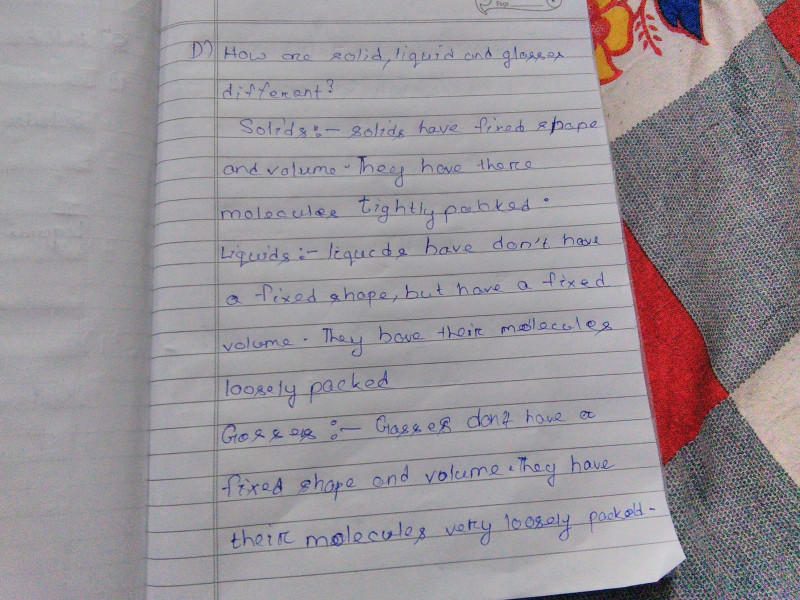 Page
D) How are solid, liquid and glasses
different?
Solids:- solids have fixed shape
and volume. They have there
molecules tightly packed.
Liquids:- liqueds have don't have
a fixed shape, but have a fixed
volume. They have their molecules
loosely packed
Gasses:- Gasses don't have a
fixed shape and volume. They have
their molecules very loosely packed.